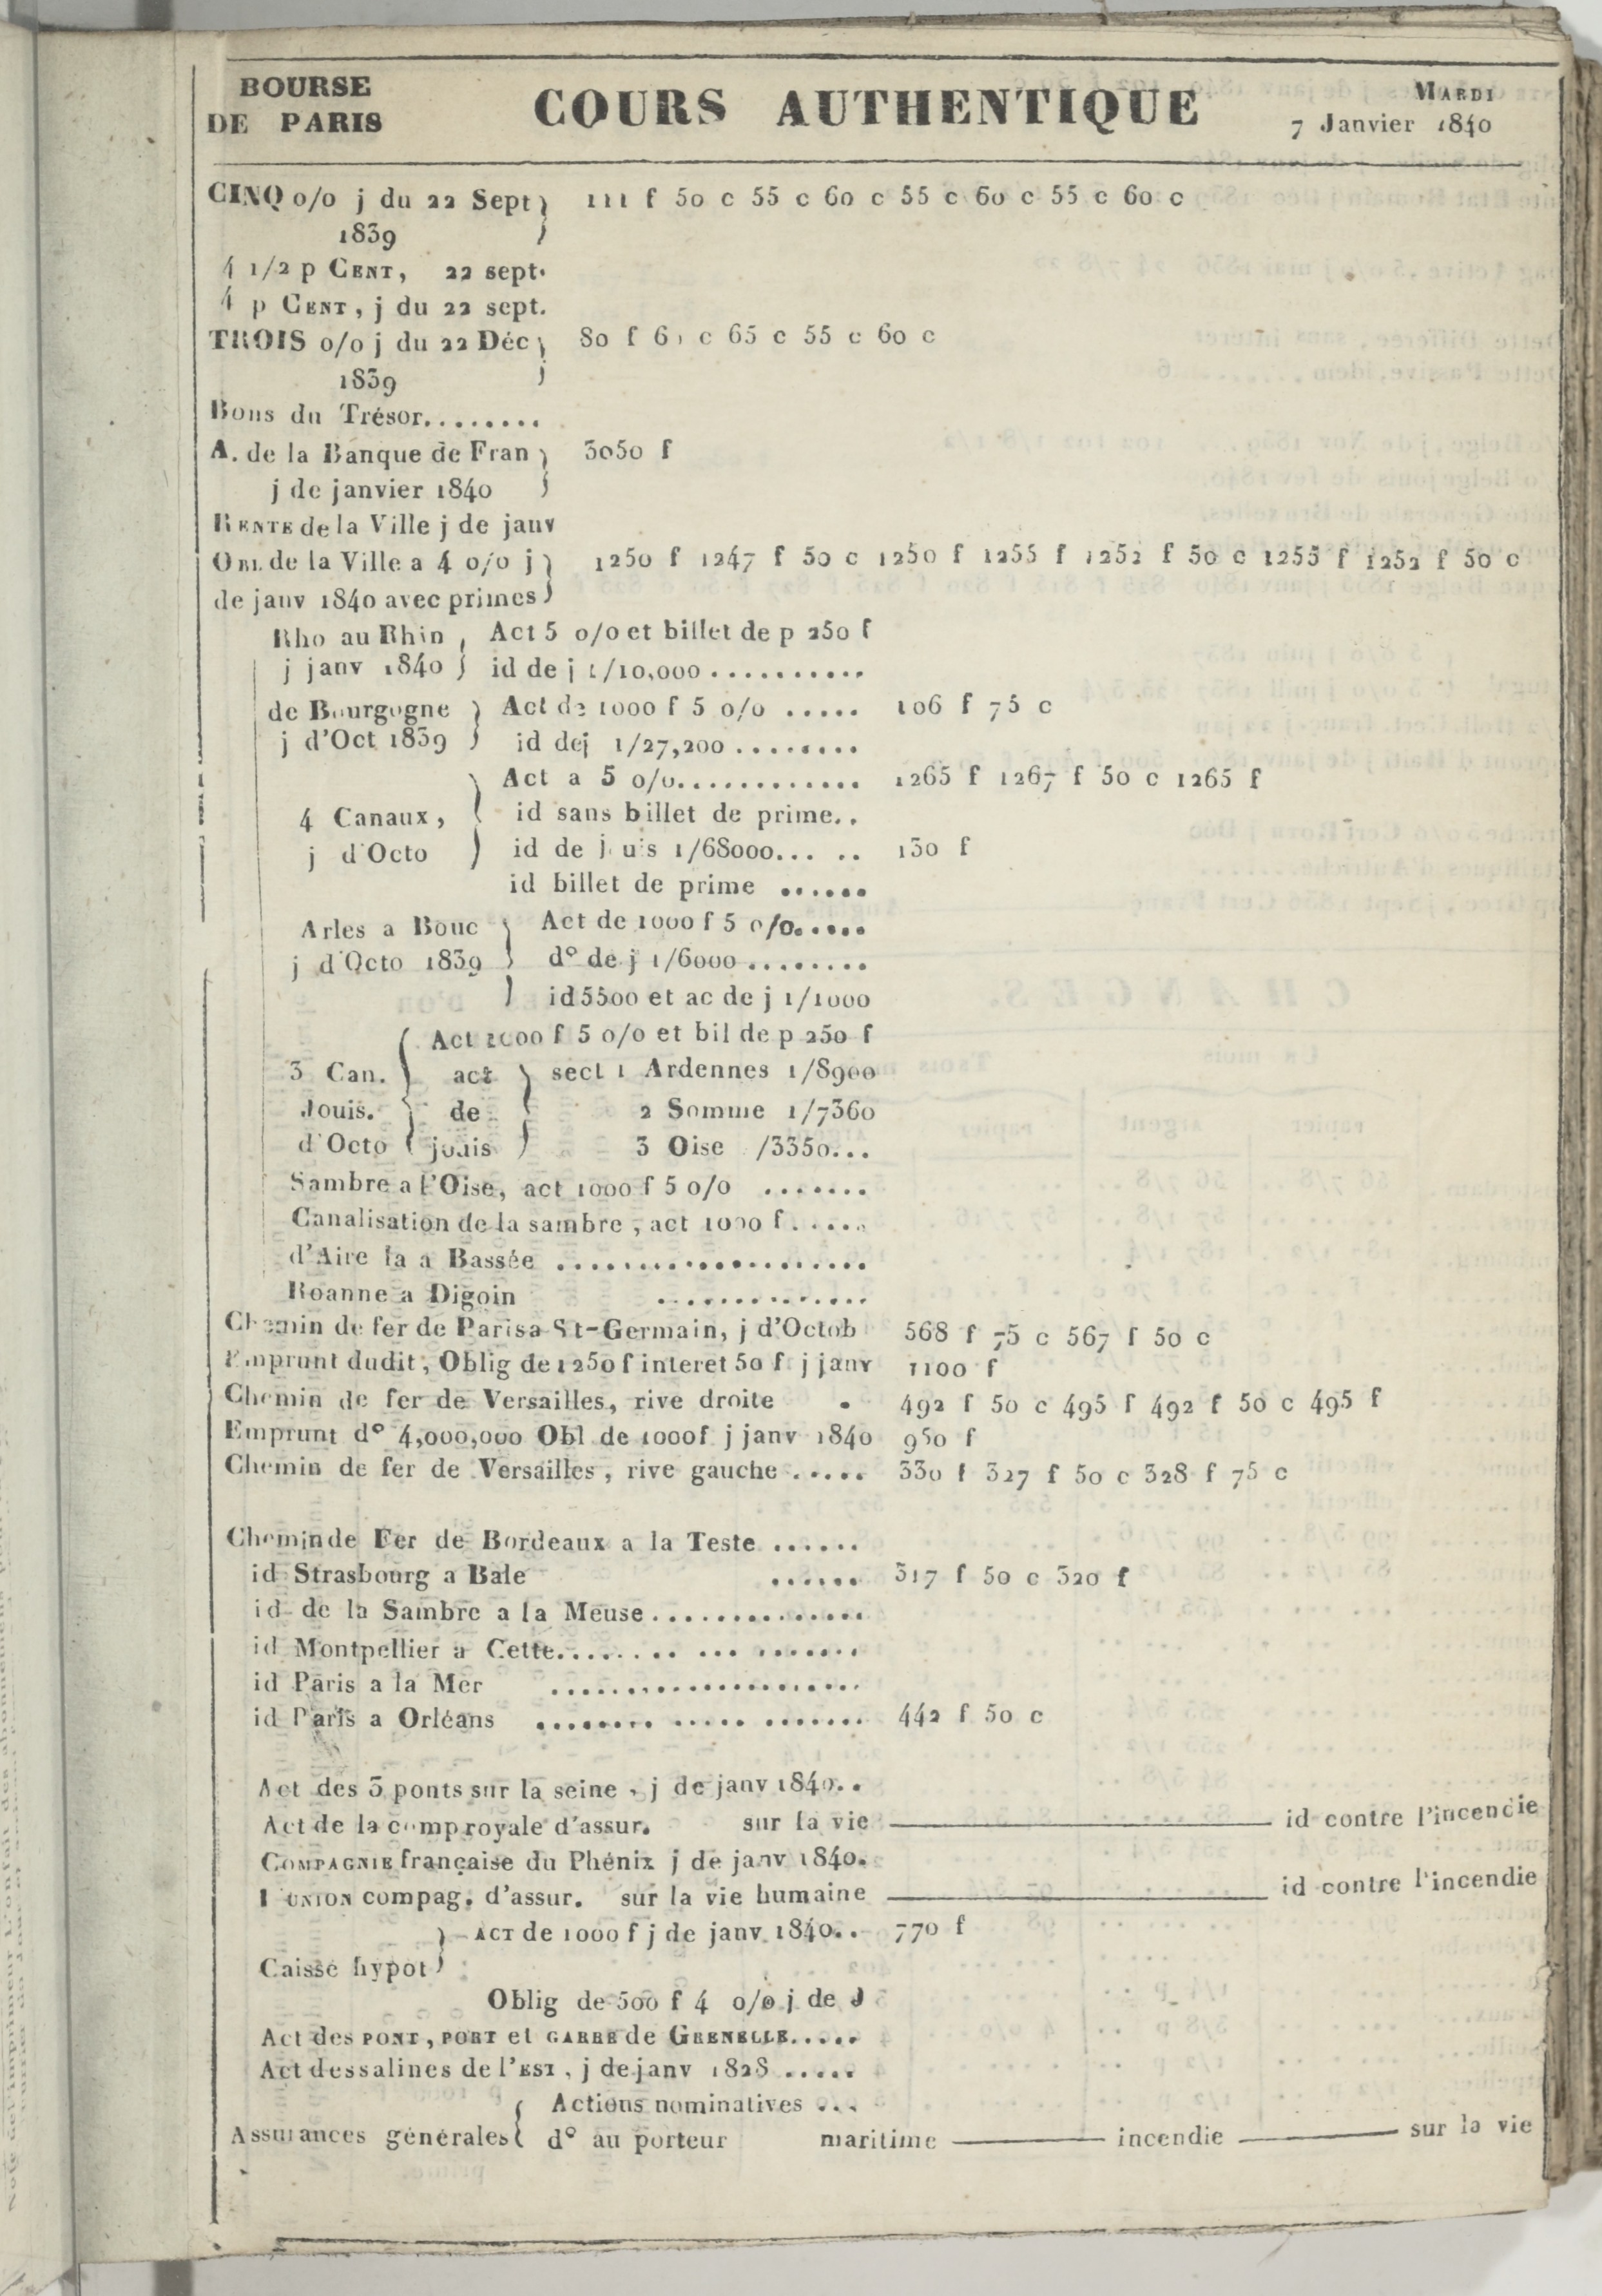 BOURSE DE PARIS
COURS AUTHENTIQUE
MARDI
7 Janvier 1840
CINQ o/o j du 22 Sept 1839 } 111 f 50 c 55 c 60 c 55 c 60 c 55 c 60 c
4 1/2 p CENT, 22 sept.
4 p CENT, j du 22 sept.
TROIS o/o j du 22 Déc 1839 } 80 f 60 c 65 c 55 c 60 c
Bons du Trésor........
A. de la Banque de Fran } 3050 f
j de janvier 1840
RENTE de la Ville j de janv
OBL de la Ville a 4 o/o j } 1250 f 1247 f 50 c 1250 f 1255 f 1252 f 50 c 1255 f 1252 f 50 c
de janv 1840 avec primes
Rho au Rhin } Act 5 o/o et billet de p 250 f
j janv 1840 } id de j 1/10,000 ..........
de Bourgogne } Act de 1000 f 5 o/o ..... 106 f 75 c
j d'Oct 1839 } id dej 1/27,200 ........
Act a 5 o/o............ 1265 f 1267 f 50 c 1265 f
4 Canaux, id sans billet de prime..
j d'Octo } id de jouis 1/68000... .. 130 f
id billet de prime ......
Arles a Bouc } Act de 1000 f 5 o/o.....
j d'Octo 1839 } d° de j 1/6000 ........
id 5500 et ac de j 1/1000
Act 1000 f 5 o/o et bil de p 250 f
3 Can. act } sect 1 Ardennes 1/8900
Jouis. de 2 Somme 1/7360
d'Octo jouis } 3 Oise /3350...
Sambre a l'Oise, act 1000 f 5 o/o .......
Canalisation de la sambre, act 1000 f......
d'Aire la a Bassée ...................
Roanne a Digoin .............
Chemin de fer de Paris a St-Germain, j d'Octob 568 f 75 c 567 f 50 c
Emprunt dudit, Oblig de 1250 f interet 50 f j janv 1100 f
Chemin de fer de Versailles, rive droite . 492 f 50 c 495 f 492 f 50 c 495 f
Emprunt d° 4,000,000 Obl de 1000f j janv 1840 950 f
Chemin de fer de Versailles, rive gauche ..... 330 f 327 f 50 c 328 f 75 c
Chemin de Fer de Bordeaux a la Teste ......
id Strasbourg a Bale ...... 317 f 50 c 320 f
id de la Sambre a la Meuse..............
id Montpellier a Cette........ ... .......
id Paris a la Mer ...................
id Paris a Orléans ........ ..... ....... 442 f 50 c
Act des 3 ponts sur la seine, j de janv 1840..
Act de la comp royale d'assur. sur la vie ——— id contre l'incencie
COMPAGNIE française du Phénix j de janv 1840.
l'UNION compag. d'assur. sur la vie humaine ——— id contre l'incendie
ACT de 1000 f j de janv 1840... 770 f
Caisse hypot }
Oblig de 500 f 4 o/o j de J
Act des PONT, PORT et GARRE de GRENELLE.....
Act des salines de l'EST, j de janv 1828 .....
Actions nominatives ...
Assurances générales { d° au porteur maritime ——— incendie ——— sur la vie